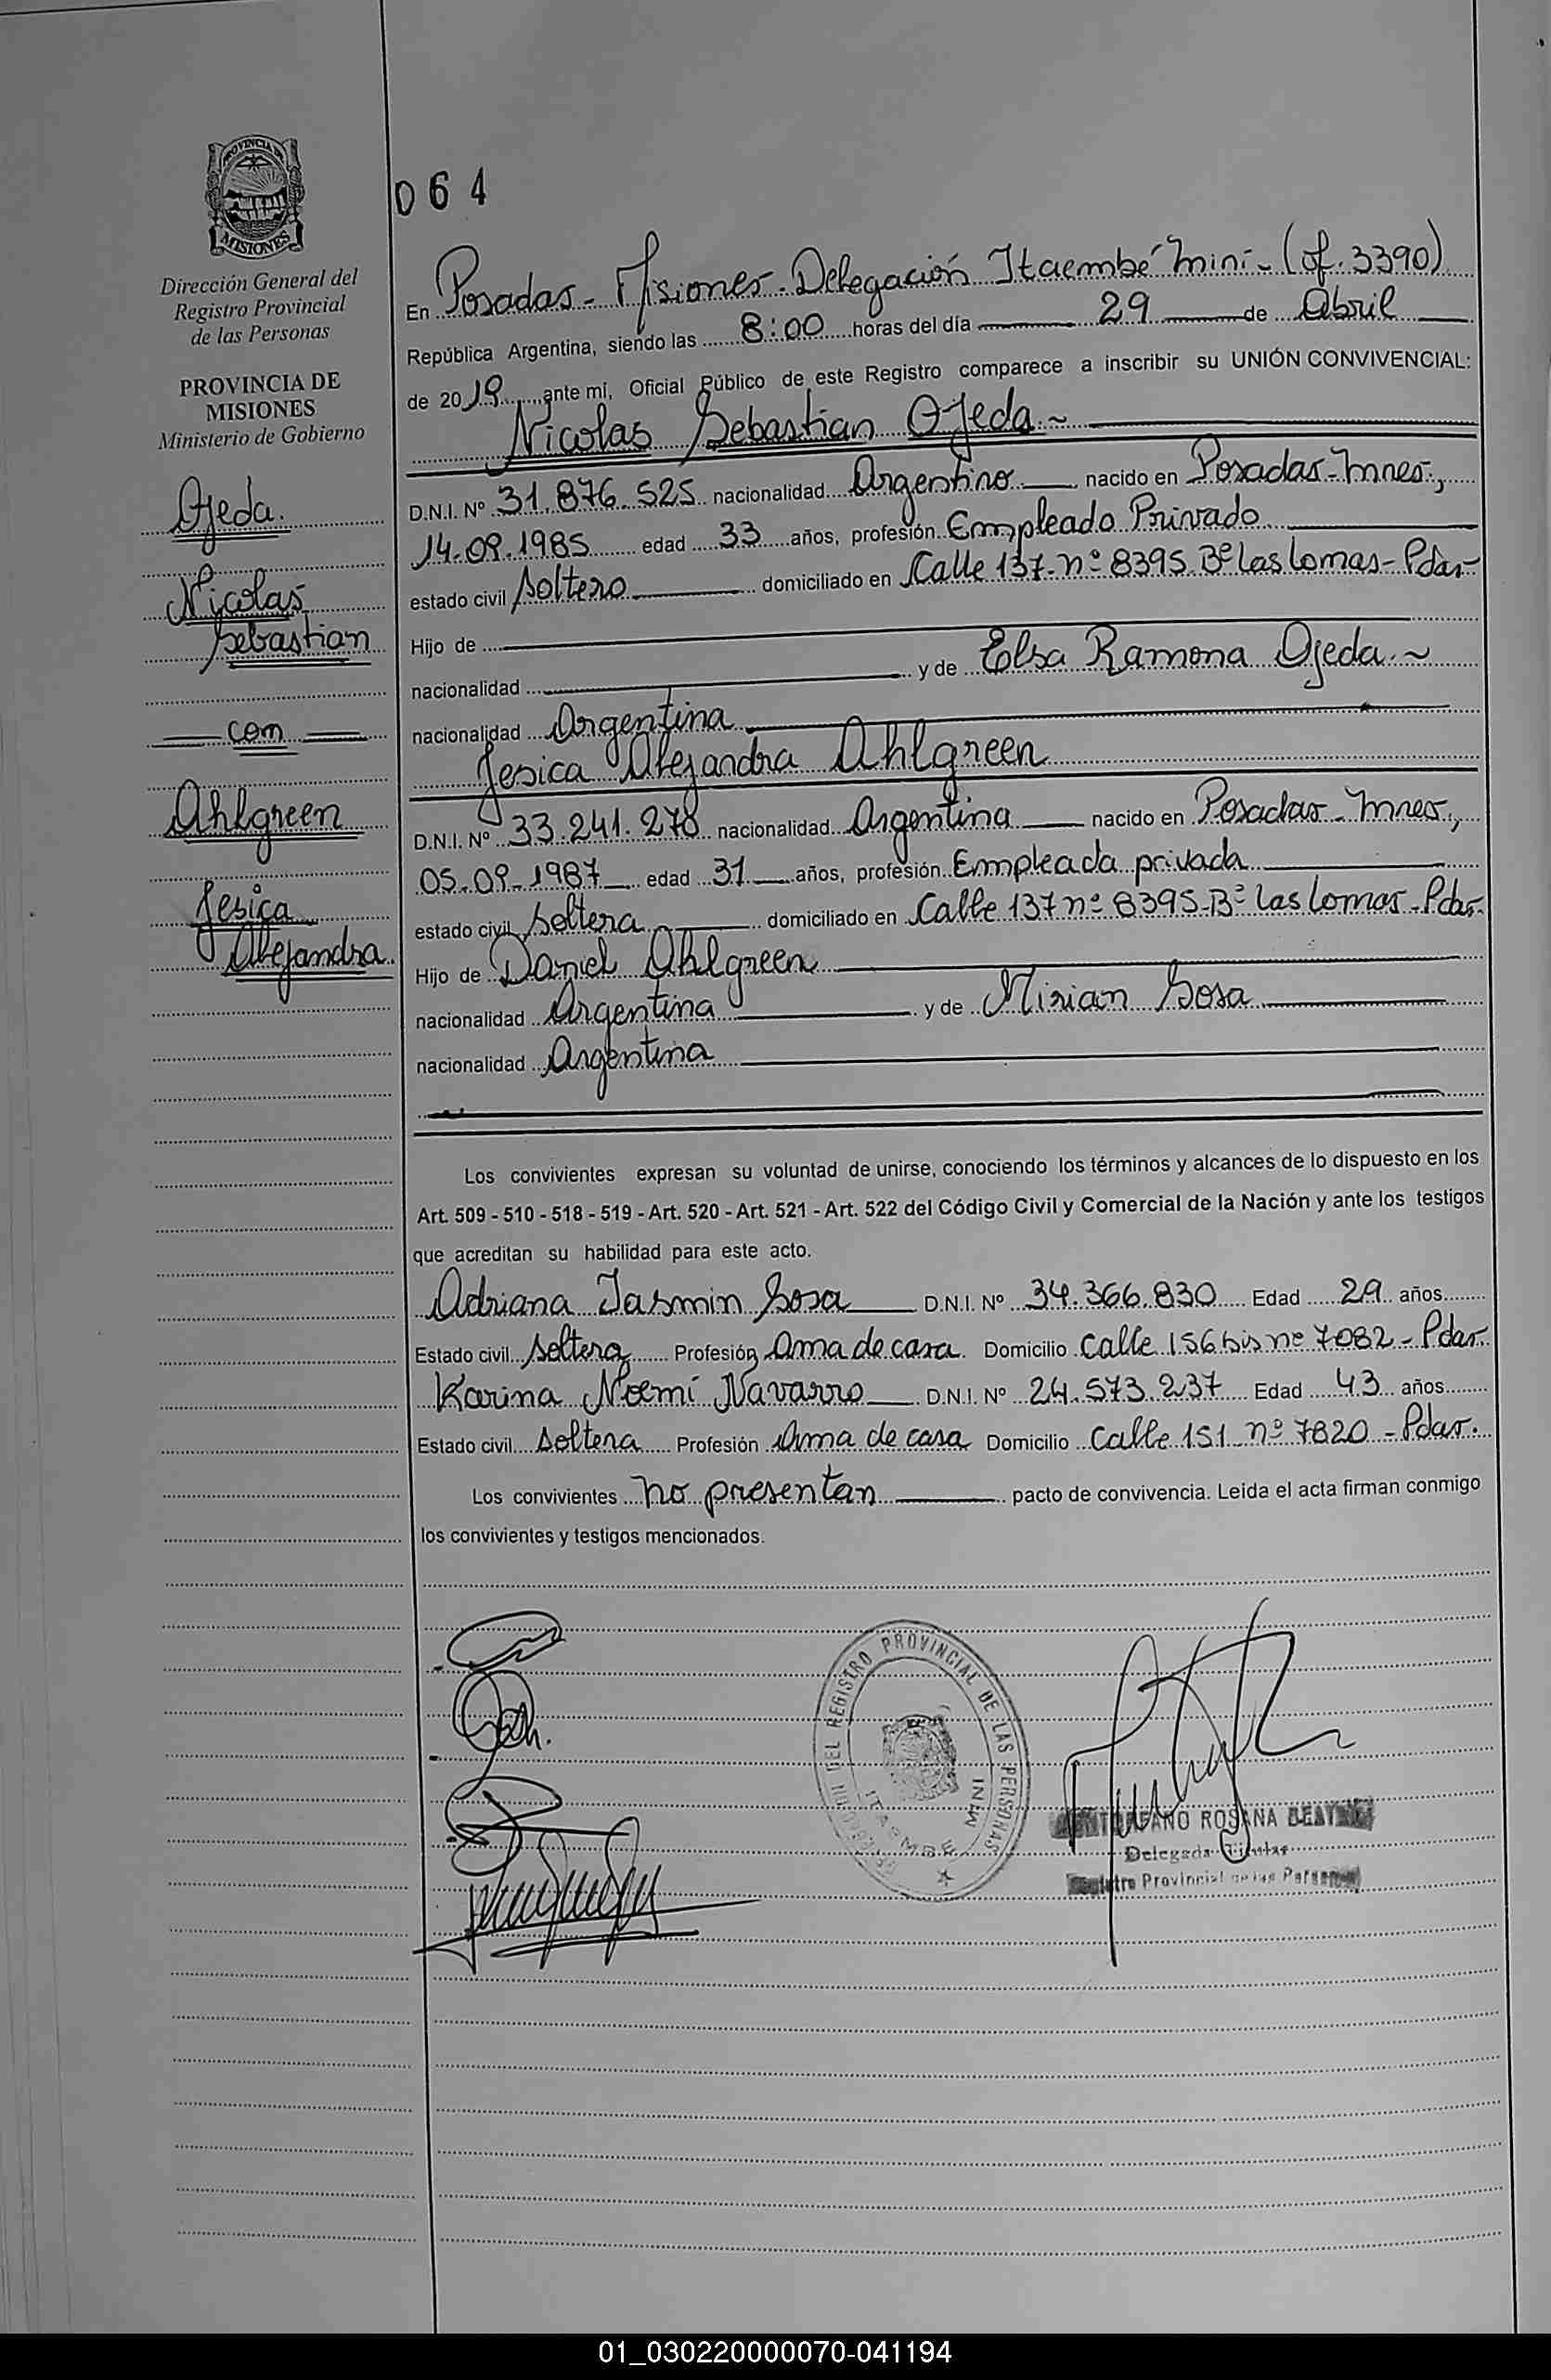 PROVINCIA DE
MISIONES
Dirección General del
Registro Provincial
de las Personas
PROVINCIA DE
MISIONES
Ministerio de Gobierno
Ojeda.
Nicolas
Sebastian
com
Ahlgreen
Jesica
Alejandra.
064
En Posadas - Misiones - Delegación Itaembé Mini - (of. 3390)
República Argentina, siendo las 8:00 horas del día 29 de Abril
de 2019 ante mi, Oficial Público de este Registro comparece a inscribir su UNIÓN CONVIVENCIAL:
Nicolas Sebastian Ojeda ~
D.N.I. Nº 31.876.525 nacionalidad Argentino nacido en Posadas - Mnes.,
14.09.1985 edad 33 años, profesión Empleado Privado
estado civil Soltero domiciliado en Calle 137 - nº 8395 Bº Las Lomas - Pdas -
Hijo de
nacionalidad y de Elsa Ramona Ojeda. ~
nacionalidad Argentina
Jesica Alejandra Ahlgreen
D.N.I. Nº 33.241.278 nacionalidad Argentina nacido en Posadas - Mnes.,
05-09-1987 edad 31 años, profesión Empleada privada
estado civil Soltera domiciliado en Calle 137 nº 8395 - Bº Las Lomas - Pdas.
Hijo de Daniel Ahlgreen
nacionalidad Argentina y de Mirian Sosa
nacionalidad Argentina
Los convivientes expresan su voluntad de unirse, conociendo los términos y alcances de lo dispuesto en los
Art. 509 - 510 - 518 - 519 - Art. 520 - Art. 521 - Art. 522 del Código Civil y Comercial de la Nación y ante los testigos
que acreditan su habilidad para este acto.
Adriana Jasmin Sosa D.N.I. Nº 34.366.830 Edad 29 años
Estado civil Soltera Profesión Ama de casa. Domicilio Calle 156 bis nº 7082 - Pdas.
Karina Noemí Navarro D.N.I. Nº 24.573.237 Edad 43 años
Estado civil Soltera Profesión Ama de casa Domicilio Calle 151 nº 7820 - Pdas.
Los convivientes no presentan pacto de convivencia. Leida el acta firman conmigo
los convivientes y testigos mencionados.
DEL REGISTRO PROVINCIAL DE LAS PERSONAS
ITAEMBE MINI
ROSANA BEATRIZ
Delegada Titular
Registro Provincial de las Personas
01_030220000070-041194